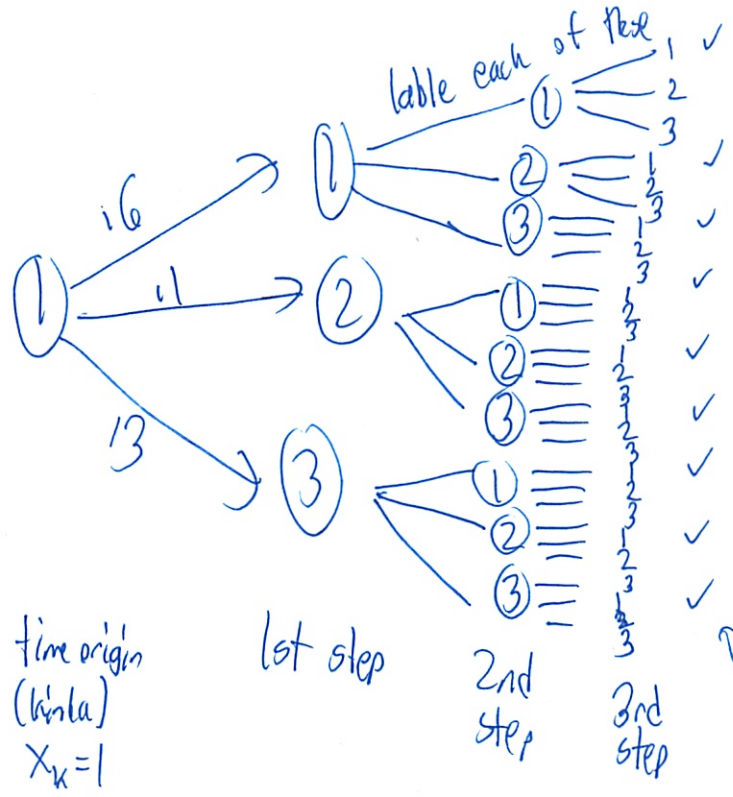 lable each of these
1 ✓
① 2
3
① 1 ✓
② 2
.6 3
③ 1 ✓
2
3
① .1 ② ① 1 ✓
2
3
② 1 ✓
2
3
③ 1 ✓
2
3
.3 ③ ① 1 ✓
2
3
② 1 ✓
2
3
③ 1 ✓
2
3
time origin
(kinda)
X_k=1
1st step
2nd
step
3rd
step
↑